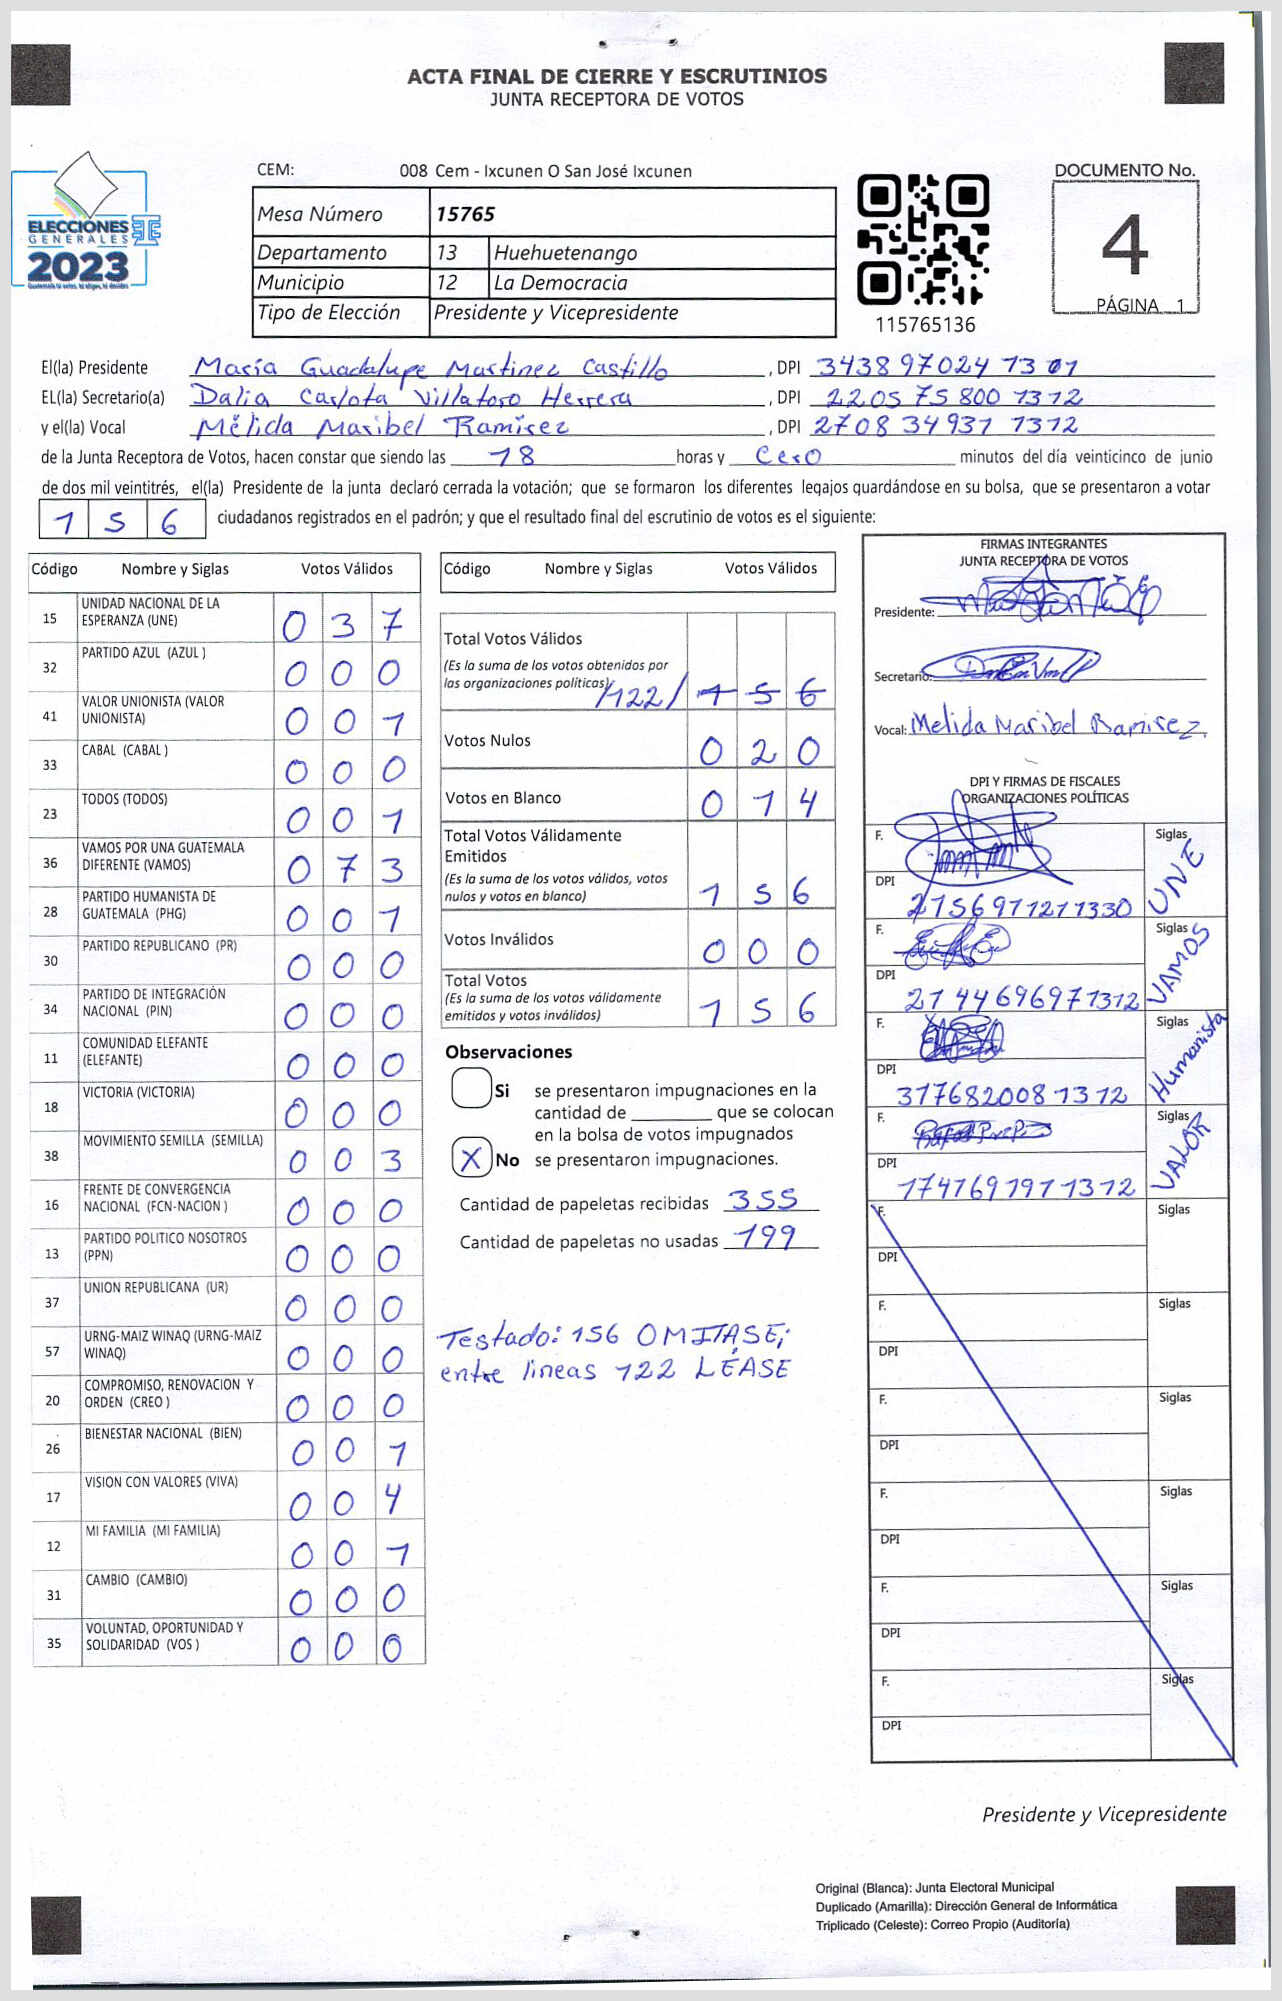 ACTA FINAL DE CIERRE Y ESCRUTINIOS
JUNTA RECEPTORA DE VOTOS
ELECCIONES
GENERALES
2023
CEM: 008 Cem - Ixcunen O San José Ixcunen
Mesa Número 15765
Departamento 13 Huehuetenango
Municipio 12 La Democracia
Tipo de Elección Presidente y Vicepresidente
115765136
DOCUMENTO No.
4
PÁGINA 1
El(la) Presidente María Guadalupe Martinez Castillo , DPI 3438 97024 1301
EL(la) Secretario(a) Dalia Carlota Villatoro Herrera , DPI 2205 75 800 1312
y el(la) Vocal Mélida Maribel Ramirez , DPI 2708 34931 1312
de la Junta Receptora de Votos, hacen constar que siendo las 18 horas y cero minutos del día veinticinco de junio
de dos mil veintitrés, el(la) Presidente de la junta declaró cerrada la votación; que se formaron los diferentes legajos quardándose en su bolsa, que se presentaron a votar
1 5 6 ciudadanos registrados en el padrón; y que el resultado final del escrutinio de votos es el siguiente:
Código Nombre y Siglas Votos Válidos
15 UNIDAD NACIONAL DE LA
ESPERANZA (UNE) 0 3 7
32 PARTIDO AZUL (AZUL ) 0 0 0
41 VALOR UNIONISTA (VALOR
UNIONISTA) 0 0 1
33 CABAL (CABAL ) 0 0 0
23 TODOS (TODOS) 0 0 1
36 VAMOS POR UNA GUATEMALA
DIFERENTE (VAMOS) 0 7 3
28 PARTIDO HUMANISTA DE
GUATEMALA (PHG) 0 0 1
30 PARTIDO REPUBLICANO (PR) 0 0 0
34 PARTIDO DE INTEGRACIÓN
NACIONAL (PIN) 0 0 0
11 COMUNIDAD ELEFANTE
(ELEFANTE) 0 0 0
18 VICTORIA (VICTORIA) 0 0 0
38 MOVIMIENTO SEMILLA (SEMILLA) 0 0 3
16 FRENTE DE CONVERGENCIA
NACIONAL (FCN-NACION ) 0 0 0
13 PARTIDO POLITICO NOSOTROS
(PPN) 0 0 0
37 UNION REPUBLICANA (UR) 0 0 0
57 URNG-MAIZ WINAQ (URNG-MAIZ
WINAQ) 0 0 0
20 COMPROMISO, RENOVACION Y
ORDEN (CREO ) 0 0 0
26 BIENESTAR NACIONAL (BIEN) 0 0 1
17 VISION CON VALORES (VIVA) 0 0 4
12 MI FAMILIA (MI FAMILIA) 0 0 1
31 CAMBIO (CAMBIO) 0 0 0
35 VOLUNTAD, OPORTUNIDAD Y
SOLIDARIDAD (VOS ) 0 0 0
Código Nombre y Siglas Votos Válidos
Total Votos Válidos
(Es la suma de los votos obtenidos por
las organizaciones políticas) /122/ 1 5 6
Votos Nulos 0 2 0
Votos en Blanco 0 1 4
Total Votos Válidamente
Emitidos
(Es la suma de los votos válidos, votos
nulos y votos en blanco) 1 5 6
Votos Inválidos 0 0 0
Total Votos
(Es la suma de los votos válidamente
emitidos y votos inválidos) 1 5 6
Observaciones
Si se presentaron impugnaciones en la
cantidad de ________ que se colocan
en la bolsa de votos impugnados
X No se presentaron impugnaciones.
Cantidad de papeletas recibidas 355
Cantidad de papeletas no usadas 199
Testado: 156 OMITASE;
entre lineas 122 LÉASE
FIRMAS INTEGRANTES
JUNTA RECEPTORA DE VOTOS
Presidente:
Secretario:
Vocal: Melida Maribel Ramirez.
DPI Y FIRMAS DE FISCALES
ORGANIZACIONES POLÍTICAS
F. Siglas UNE
DPI 2156911211330
F. Siglas VAMOS
DPI 2144696971312
F. Siglas Humanista
DPI 3177682008 1312
F. Siglas VALOR
DPI 1741769197 1312
F. Siglas
DPI
F. Siglas
DPI
F. Siglas
DPI
F. Siglas
DPI
F. Siglas
DPI
F. Siglas
DPI
Presidente y Vicepresidente
Original (Blanca): Junta Electoral Municipal
Duplicado (Amarilla): Dirección General de Informática
Triplicado (Celeste): Correo Propio (Auditoría)